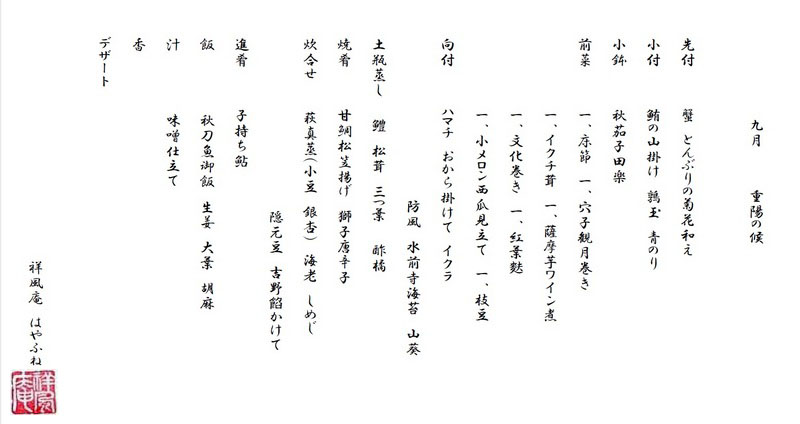 九月　重陽の候
先付　蟹 とんぶりの菊花和え
小付　鮪の山掛け 鶉玉 青のり
小鉢　秋茄子田楽
前菜　一、床節 一、穴子観月巻き
一、イクチ茸 一、薩摩芋ワイン煮
一、文化巻き 一、紅葉麩
一、小メロン西瓜見立て 一、枝豆
向付　ハマチ おから掛けて イクラ
防風 水前寺海苔 山葵
土瓶蒸し　鱧 松茸 三つ葉 酢橘
焼肴　甘鯛松笠揚げ 獅子唐辛子
炊合せ　萩真蒸(小豆 銀杏) 海老 しめじ
隠元豆 吉野餡かけて
進肴　子持ち鮎
飯　秋刀魚御飯 生姜 大葉 胡麻
汁　味噌仕立て
香
デザート
祥風庵 はやふね
祥風庵